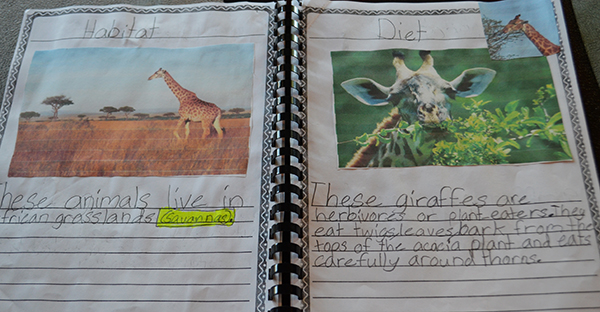 Habitat
These animals live in
African grasslands (savannas).
Diet
These giraffes are
herbivores or plant eaters. They
eat twigs leaves, bark from the
tops of the acacia plant and eats
carefully around thorns.